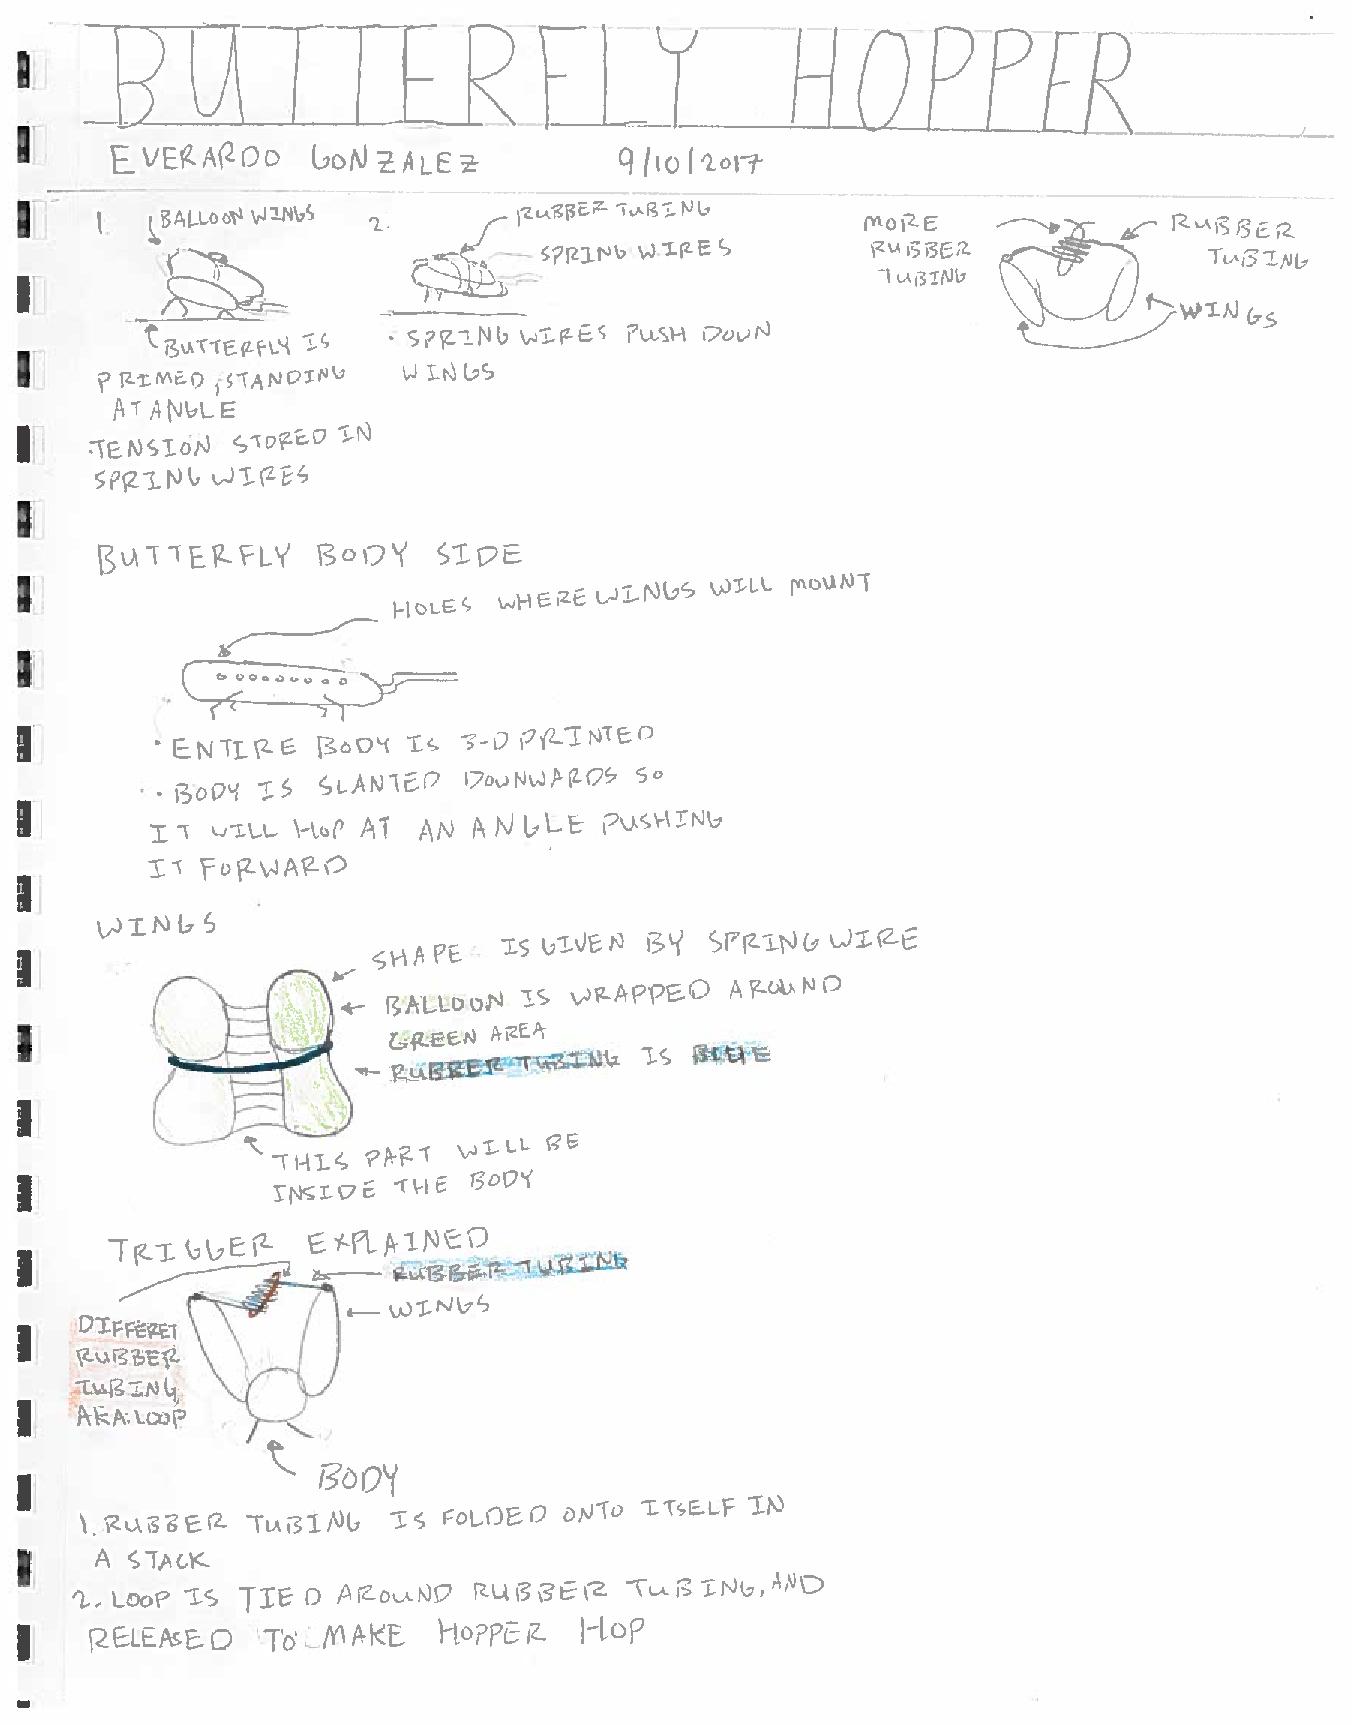 BUTTERFLY HOPPER
EVERARDO GONZALEZ 9/10/2017
1. BALLOON WINGS
BUTTERFLY IS
PRIMED, STANDING
AT ANGLE
·TENSION STORED IN
SPRING WIRES
2. RUBBER TUBING
SPRING WIRES
· SPRING WIRES PUSH DOWN
WINGS
MORE
RUBBER
TUBING
RUBBER
TUBING
WINGS
BUTTERFLY BODY SIDE
HOLES WHERE WINGS WILL MOUNT
· ENTIRE BODY IS 3-D PRINTED
· BODY IS SLANTED DOWNWARDS SO
IT WILL HOP AT AN ANGLE PUSHING
IT FORWARD
WINGS
SHAPE IS GIVEN BY SPRING WIRE
BALLOON IS WRAPPED AROUND
GREEN AREA
RUBBER TUBING IS BLUE
THIS PART WILL BE
INSIDE THE BODY
TRIGGER EXPLAINED
RUBBER TUBING
WINGS
DIFFERET
RUBBER
TUBING,
AKA: LOOP
BODY
1. RUBBER TUBING IS FOLDED ONTO ITSELF IN
A STACK
2. LOOP IS TIED AROUND RUBBER TUBING, AND
RELEASED TO MAKE HOPPER HOP